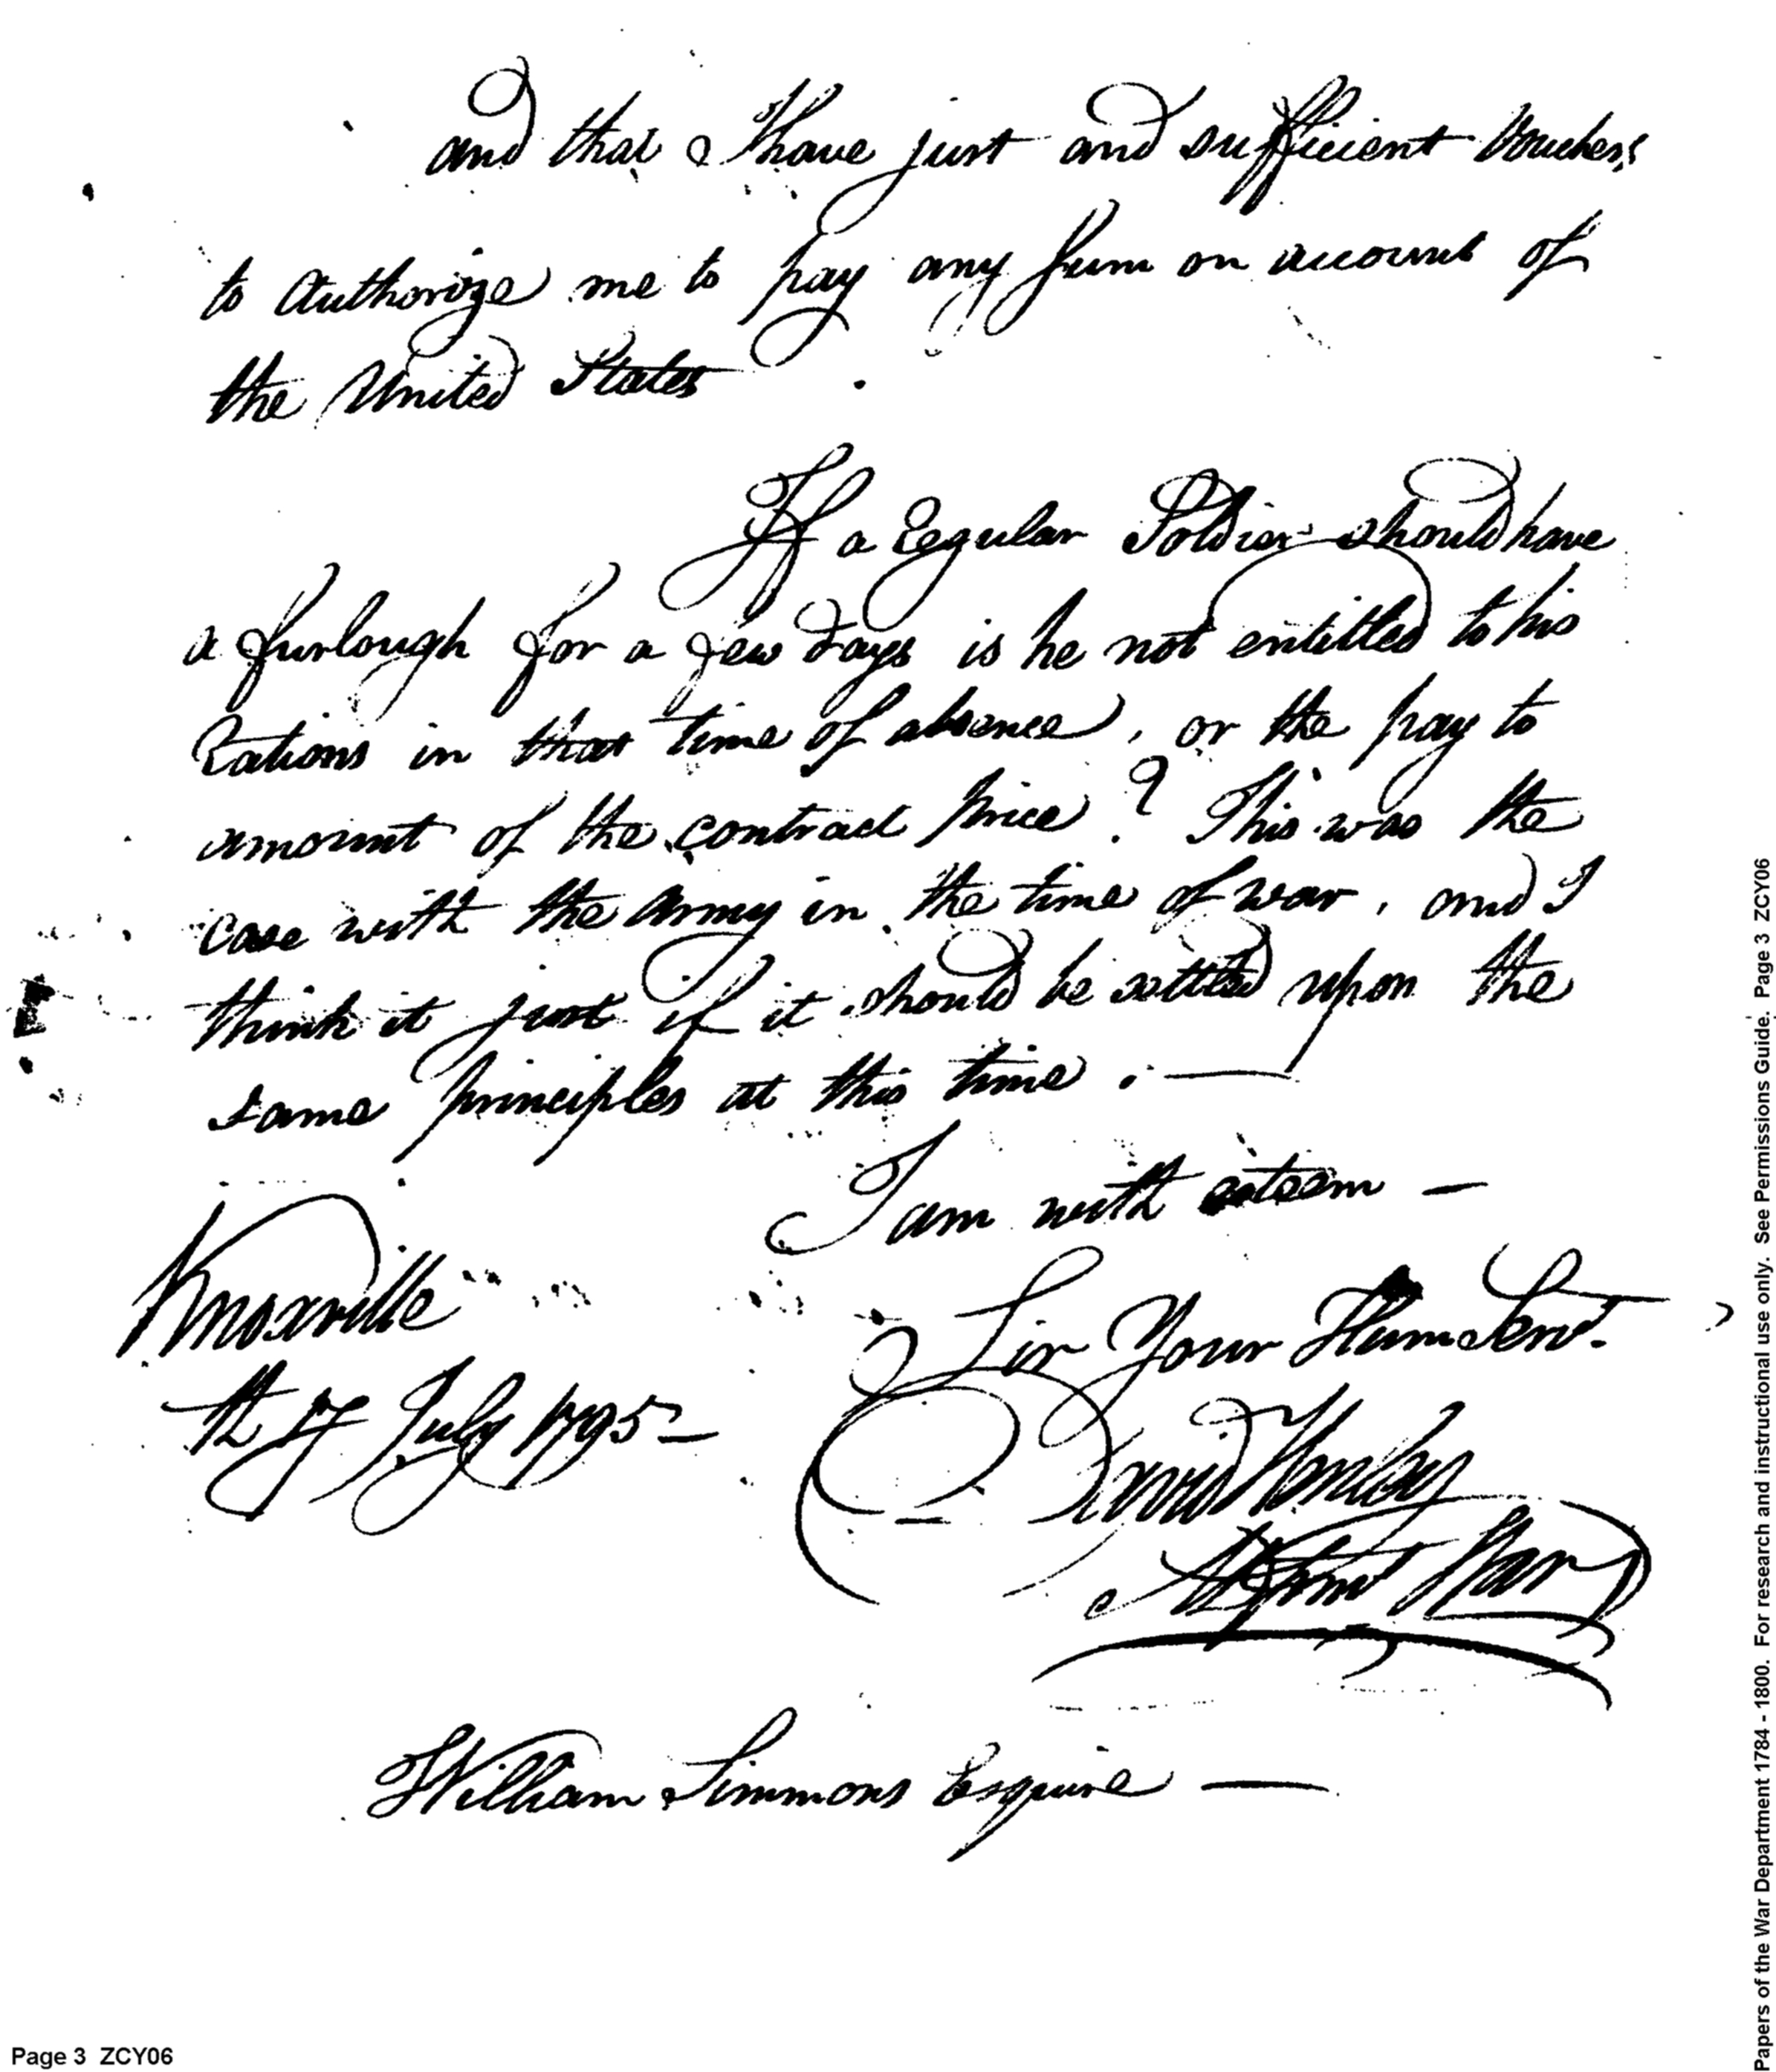 and that I have just and sufficient Vouchers
to Authorize me to pay any sum on account of
the United States
If a Regular Soldier should have
a furlough for a few days is he not entitled to his
Rations in that time of absence, or the pay to
amount of the contract price? This was the
case with the Army in the time of war, and I
think it just if it should be settled upon the
same principles at this time. —
I am with esteem —
Sir Your Hume Servt.
Knoxville
th 17 July 1795 —
David Henley
Agent War D
William Simmons Esquire —
Page 3 ZCY06
Papers of the War Department 1784 - 1800. For research and instructional use only. See Permissions Guide. Page 3 ZCY06